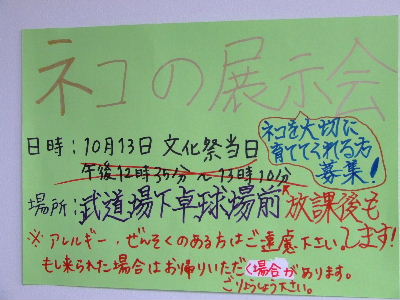 ネコの展示会
日時：10月13日 文化祭当日
午後12時35分〜13時10分
ネコを大切に
育ててくれる方
募集！
場所：武道場下卓球場前 放課後も
します！
※アレルギー・ぜんそくのある方はご遠慮下さい。
もし来られた場合はお帰りいただく場合があります。
ごりょうしょう下さい。